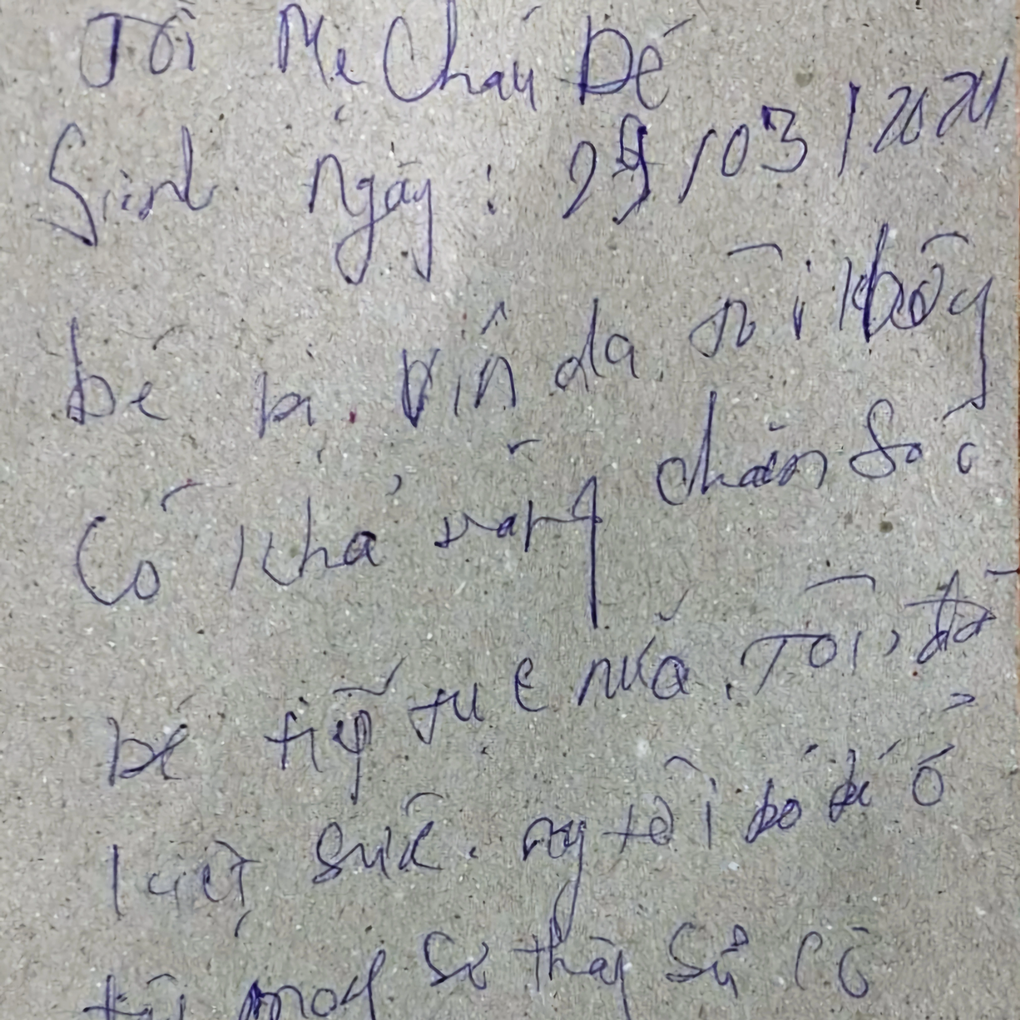 Tôi Mẹ Cháu Bé
Sinh ngày: 29/03/2024
bé bị viên da. Tôi không
Có khả năng chăm Sóc
bé tiếp tục nữa. Tôi, đã
kiệt sức. nay tôi bỏ bé ở
tôi mong Sư thầy Sư Cô